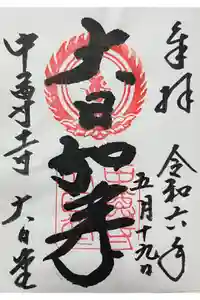 奉拝
令和六年
五月十九日
大日如来
中尊寺 大日堂